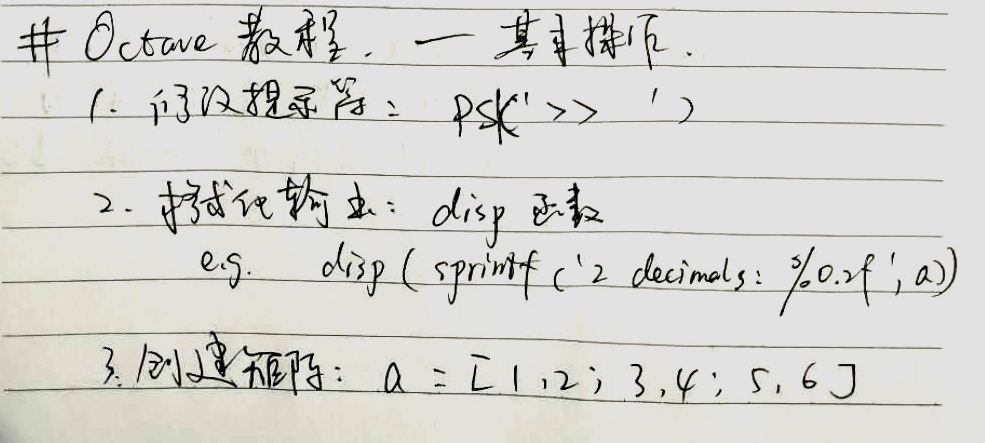 # Octave 教程. — 基本操作.
1. 修改提示符: PS1('>> ')
2. 格式化输出: disp 函数
e.g. disp( sprintf ('2 decimals: %0.2f', a))
3. 创建矩阵: a = [1,2; 3,4; 5,6]